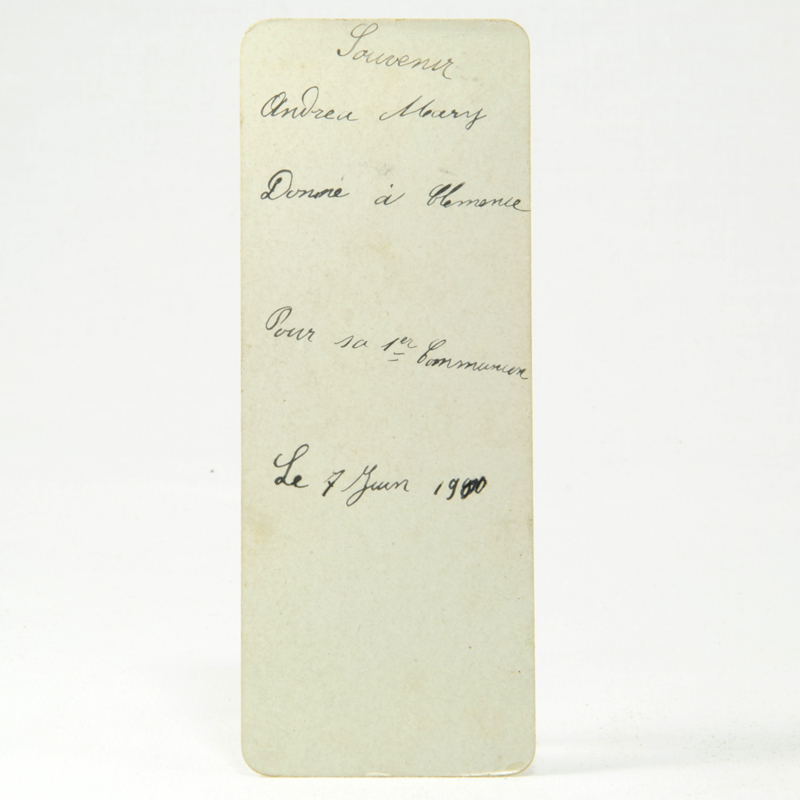 Souvenir
Andrea Maery
Donné à Clemence
Pour sa 1er Communion
Le 7 Juin 1900